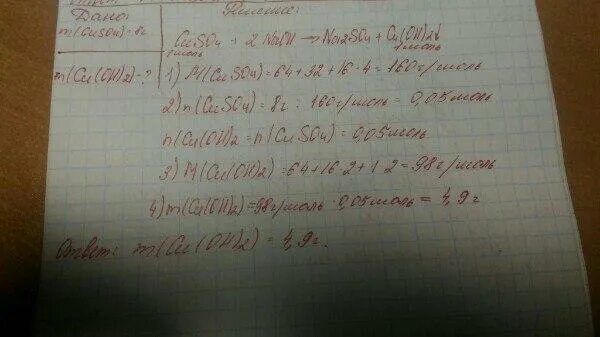 Дано: Решение:
m(CuSO4)=8г
CuSO4 + 2 NaOH → Na2SO4 + Cu(OH)2↓
1моль 1моль
m(Cu(OH)2)-?
1) M(CuSO4)=64+32+16·4=160г/моль
2) n(CuSO4)=8г : 160г/моль = 0,05моль
n(Cu(OH)2=n(CuSO4)=0,05моль
3) M(Cu(OH)2)=64+16·2+1·2=98г/моль
4) m(Cu(OH)2)=98г/моль · 0,05моль = 4,9г
Ответ: m(Cu(OH)2) = 4,9г.